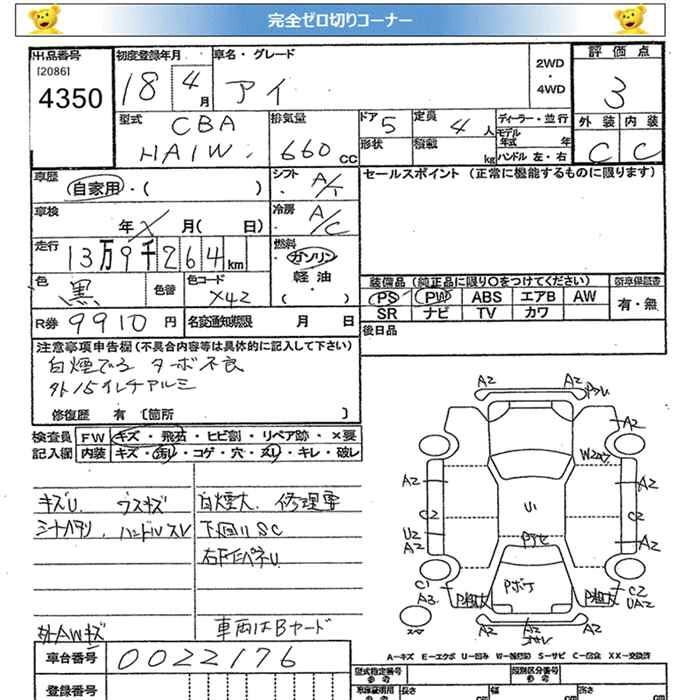 完全ゼロ切りコーナー
出品番号 初度登録年月 車名・グレード 2WD・4WD 評価点
[2086]
4350 18 4月 アイ 3
型式 CBA HA1W 排気量 660cc ドア 5 定員 4人 ディーラー・並行 外装 内装
形状 積載 kg モデル年式 年 ハンドル 左・右 C C
車歴 自家用・( ) シフト A/T セールスポイント (正常に機能するものに限ります)
車検 年 月( 日) 冷房 A/C
走行 13万9千264km 燃料 ガソリン・軽油・( )
色 黒 色替 色コード X42 装備品 (純正品に限り○をつけてください) 新車保証書
PS PW ABS エアB AW 有・無
R券 9910円 名変通知期限 月 日 SR ナビ TV カワ
後日品
注意事項申告欄 (不具合内容等は具体的に記入して下さい)
白煙でる ターボ不良
外15インチアルミ
修復歴 有 [箇所 ]
検査員 FW キズ・飛石・ヒビ割・リペア跡・×要
記入欄 内装 キズ・汚れ・コゲ・穴・スレ・キレ・破レ
キズU. ウスキズ 白煙大 修理要
シートヘタリ ハンドルスレ 下回りSC
外AWキズ 車両はBヤード
A2 A2
A2
A2 A2
C2 U1 C2
U2 A2 A2
C1 A3 C2 UA2
A2 A2 A2
A-キズ E-エクボ U-凹み W-補修跡 S-サビ C-腐食 XX-交換済
車台番号 0022176
登録番号 型式指定番号 参考 類別区分番号 参考
長さ cm 幅 cm 高さ cm